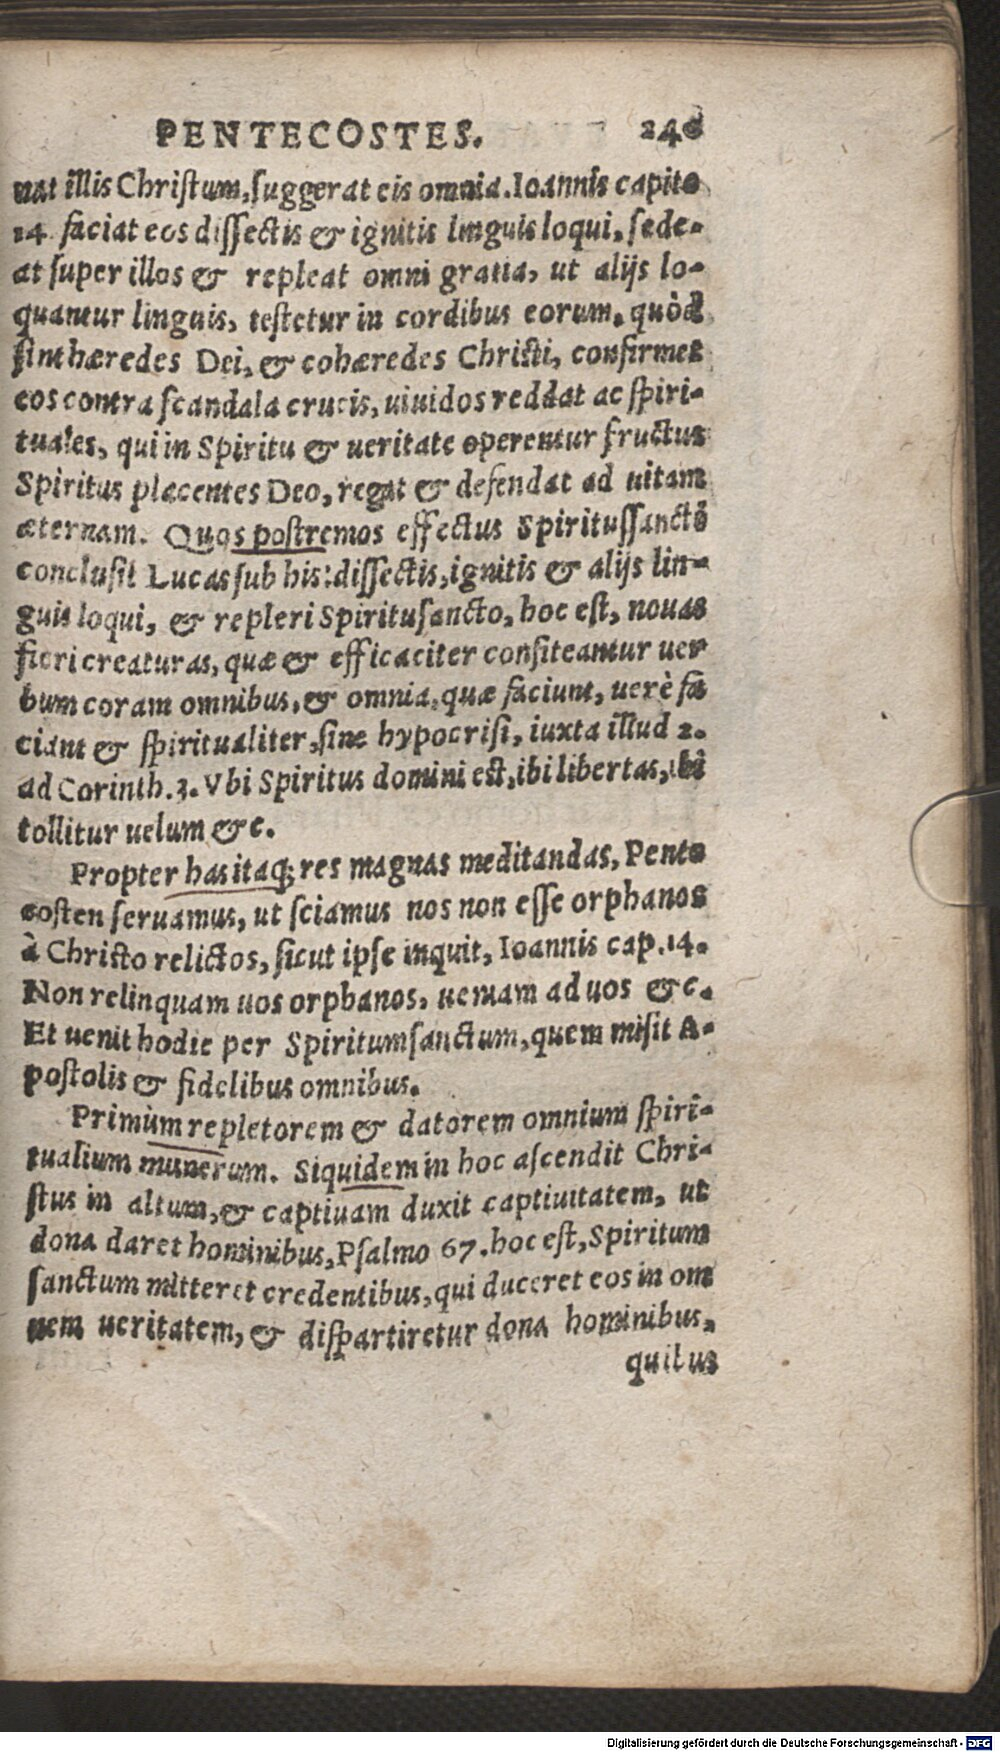 PENTECOSTES. 240
nat illis Christum, suggerat eis omnia. Ioannis capite
14 faciat eos dissectis & ignitis linguis loqui, sede-
at super illos & repleat omni gratia, ut alijs lo-
quantur linguis, testetur in cordibus eorum, quòd
sint hæredes Dei, & cohæredes Christi, confirmet
eos contra scandala crucis, uiuidos reddat ac spiri-
tuales, qui in Spiritu & ueritate operentur fructus
Spiritus placentes Deo, regat & defendat ad uitam
æternam. Quos postremos effectus Spiritussancti
conclusit Lucas sub his: dissectis, ignitis & alijs lin-
guis loqui, & repleri Spiritusancto, hoc est, nouas
fieri creaturas, quæ & efficaciter confiteantur uer
bum coram omnibus, & omnia, quæ faciunt, uerè fa
ciant & spiritualiter, sine hypocrisi, iuxta illud 2.
ad Corinth. 3. Vbi Spiritus domini est, ibi libertas, ibi
tollitur uelum &c.
Propter has itaq; res magnas meditandas, Pente
costen seruamus, ut sciamus nos non esse orphanos
à Christo relictos, sicut ipse inquit, Ioannis cap. 14.
Non relinquam uos orphanos, ueniam ad uos &c.
Et uenit hodie per Spiritumsanctum, quem misit A-
postolis & fidelibus omnibus.
Primùm repletorem & datorem omnium spiri-
tualium munerum. Siquidem in hoc ascendit Chri-
stus in altum, & captiuam duxit captiuitatem, ut
dona daret hominibus, Psalmo 67. hoc est, Spiritum
sanctum mitteret credentibus, qui duceret eos in om
nem ueritatem, & dispartiretur dona hominibus,
quibus
Digitalisierung gefördert durch die Deutsche Forschungsgemeinschaft - DFG